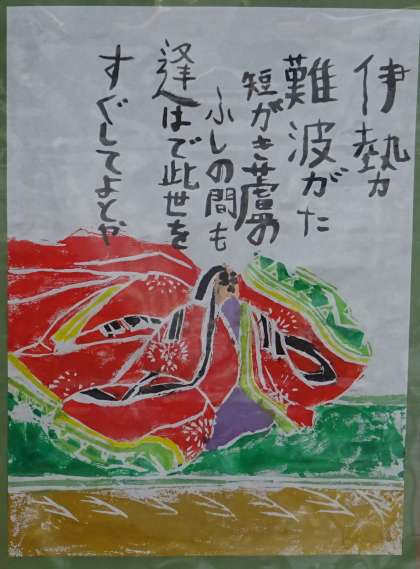 伊勢
難波がた
短がき蘆の
ふしの間も
逢はで此世を
すぐしてよとや